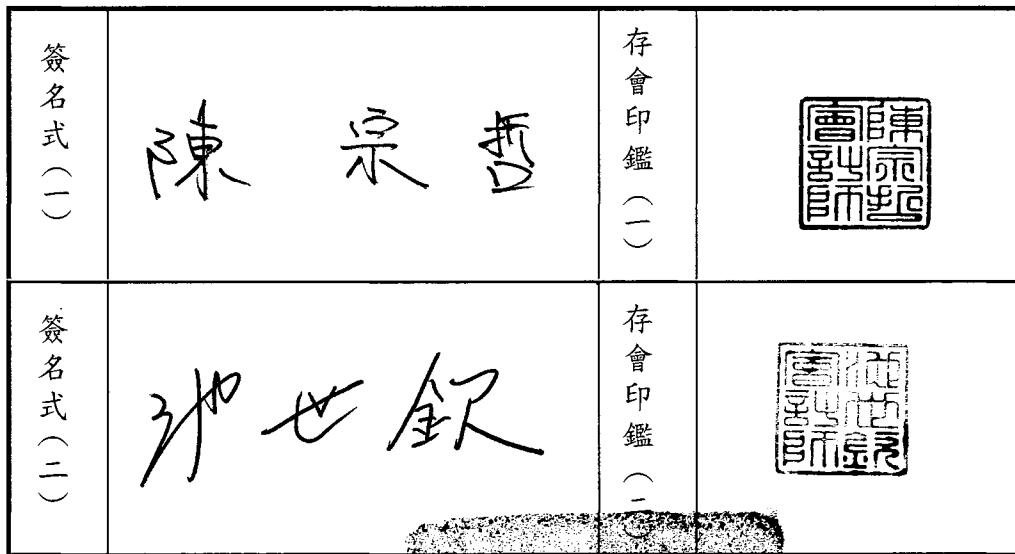 簽名式(一)
陳宗哲
存會印鑑(一)
陳宗哲會計師
簽名式(二)
池世欽
存會印鑑(二)
池世欽會計師